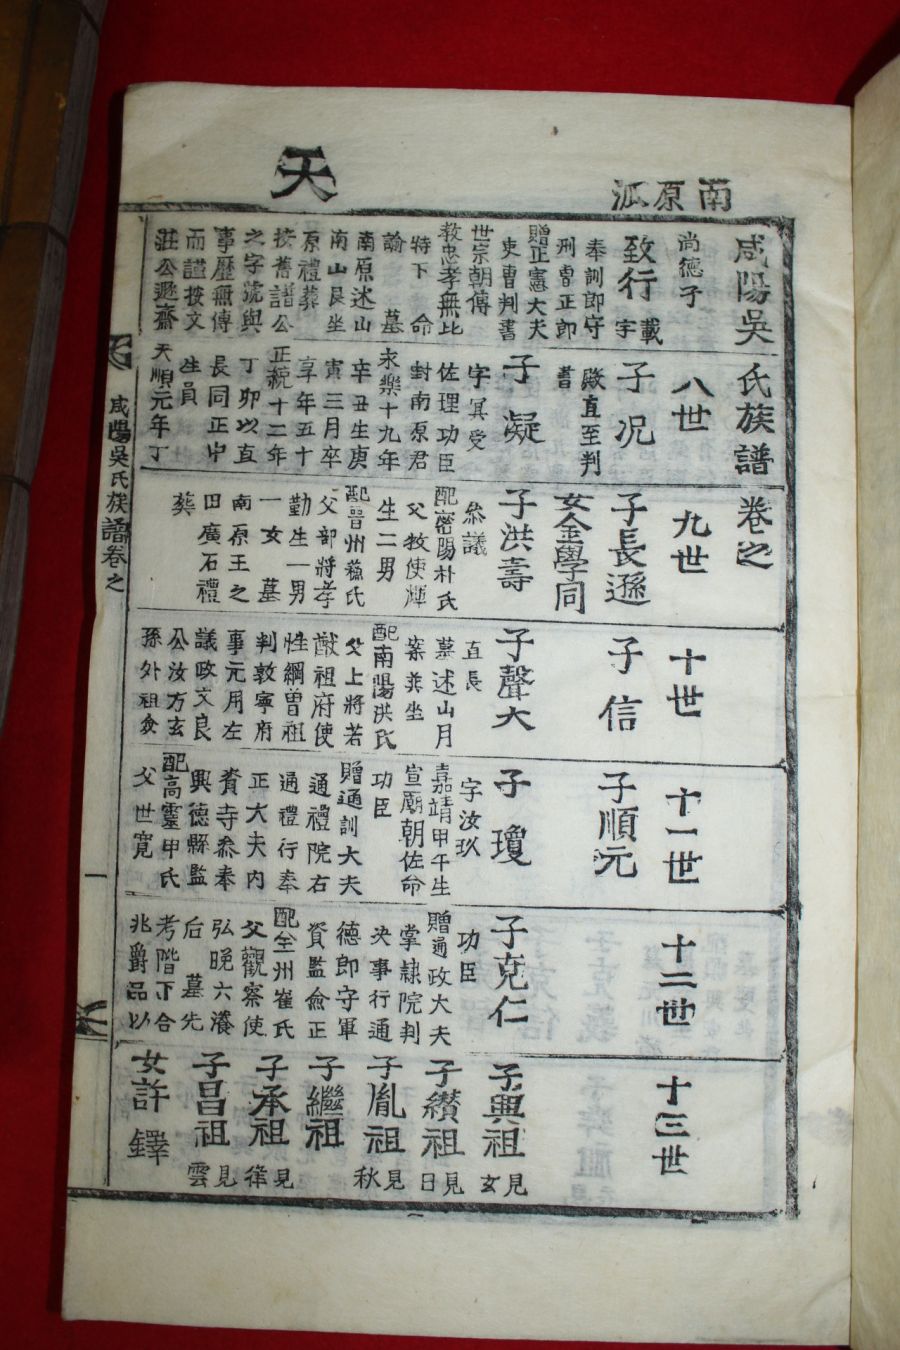 天
南原派
咸陽吳氏族譜卷之
尚德子
致行
字載
奉訓郎守
刑曹正郎
贈正憲大夫
吏曹判書
世宗朝傳
教忠孝無比
特下命
諭墓
南原述山
南山艮坐
原禮葬
按舊譜公
之字號與
事歷無傳
而謹按文
莊公遯齋
八世
子況
殿直至判
書
子凝
字冥受
佐理功臣
封南原君
永樂十九年
辛丑生庚
寅三月卒
享年五十
正統十二年
丁卯以直
長同正中
生員
天順元年丁
九世
子長遜
女金學同
子洪壽
參議
配密陽朴氏
父教使輝
生二男
配晉州蘇氏
父部將孝
勤生一男
一女墓
南原王之
田廣石禮
葬
十世
子信
子聲大
直長
墓述山月
案癸坐
配南陽洪氏
父上將若
猷祖府使
性綱曾祖
判敦寧府
事元用左
議政文良
公汝方玄
孫外祖僉
十一世
子順元
子瓊
字汝玖
嘉靖甲午生
宣廟朝佐命
功臣
贈通訓大夫
通禮院右
通禮行奉
正大夫內
資寺參奉
興德縣監
配高靈申氏
父世寬
十二世
子克仁
功臣
贈通政大夫
掌隸院判
決事行通
德郎守軍
資監僉正
配全州崔氏
父觀察使
弘晚六養
后墓先
考階下合
兆爵品以
十三世
子興祖
見玄
子纘祖
見日
子胤祖
見秋
子繼祖
子承祖
見律
子昌祖
見雲
女許鐸
咸陽吳氏族譜卷之
一